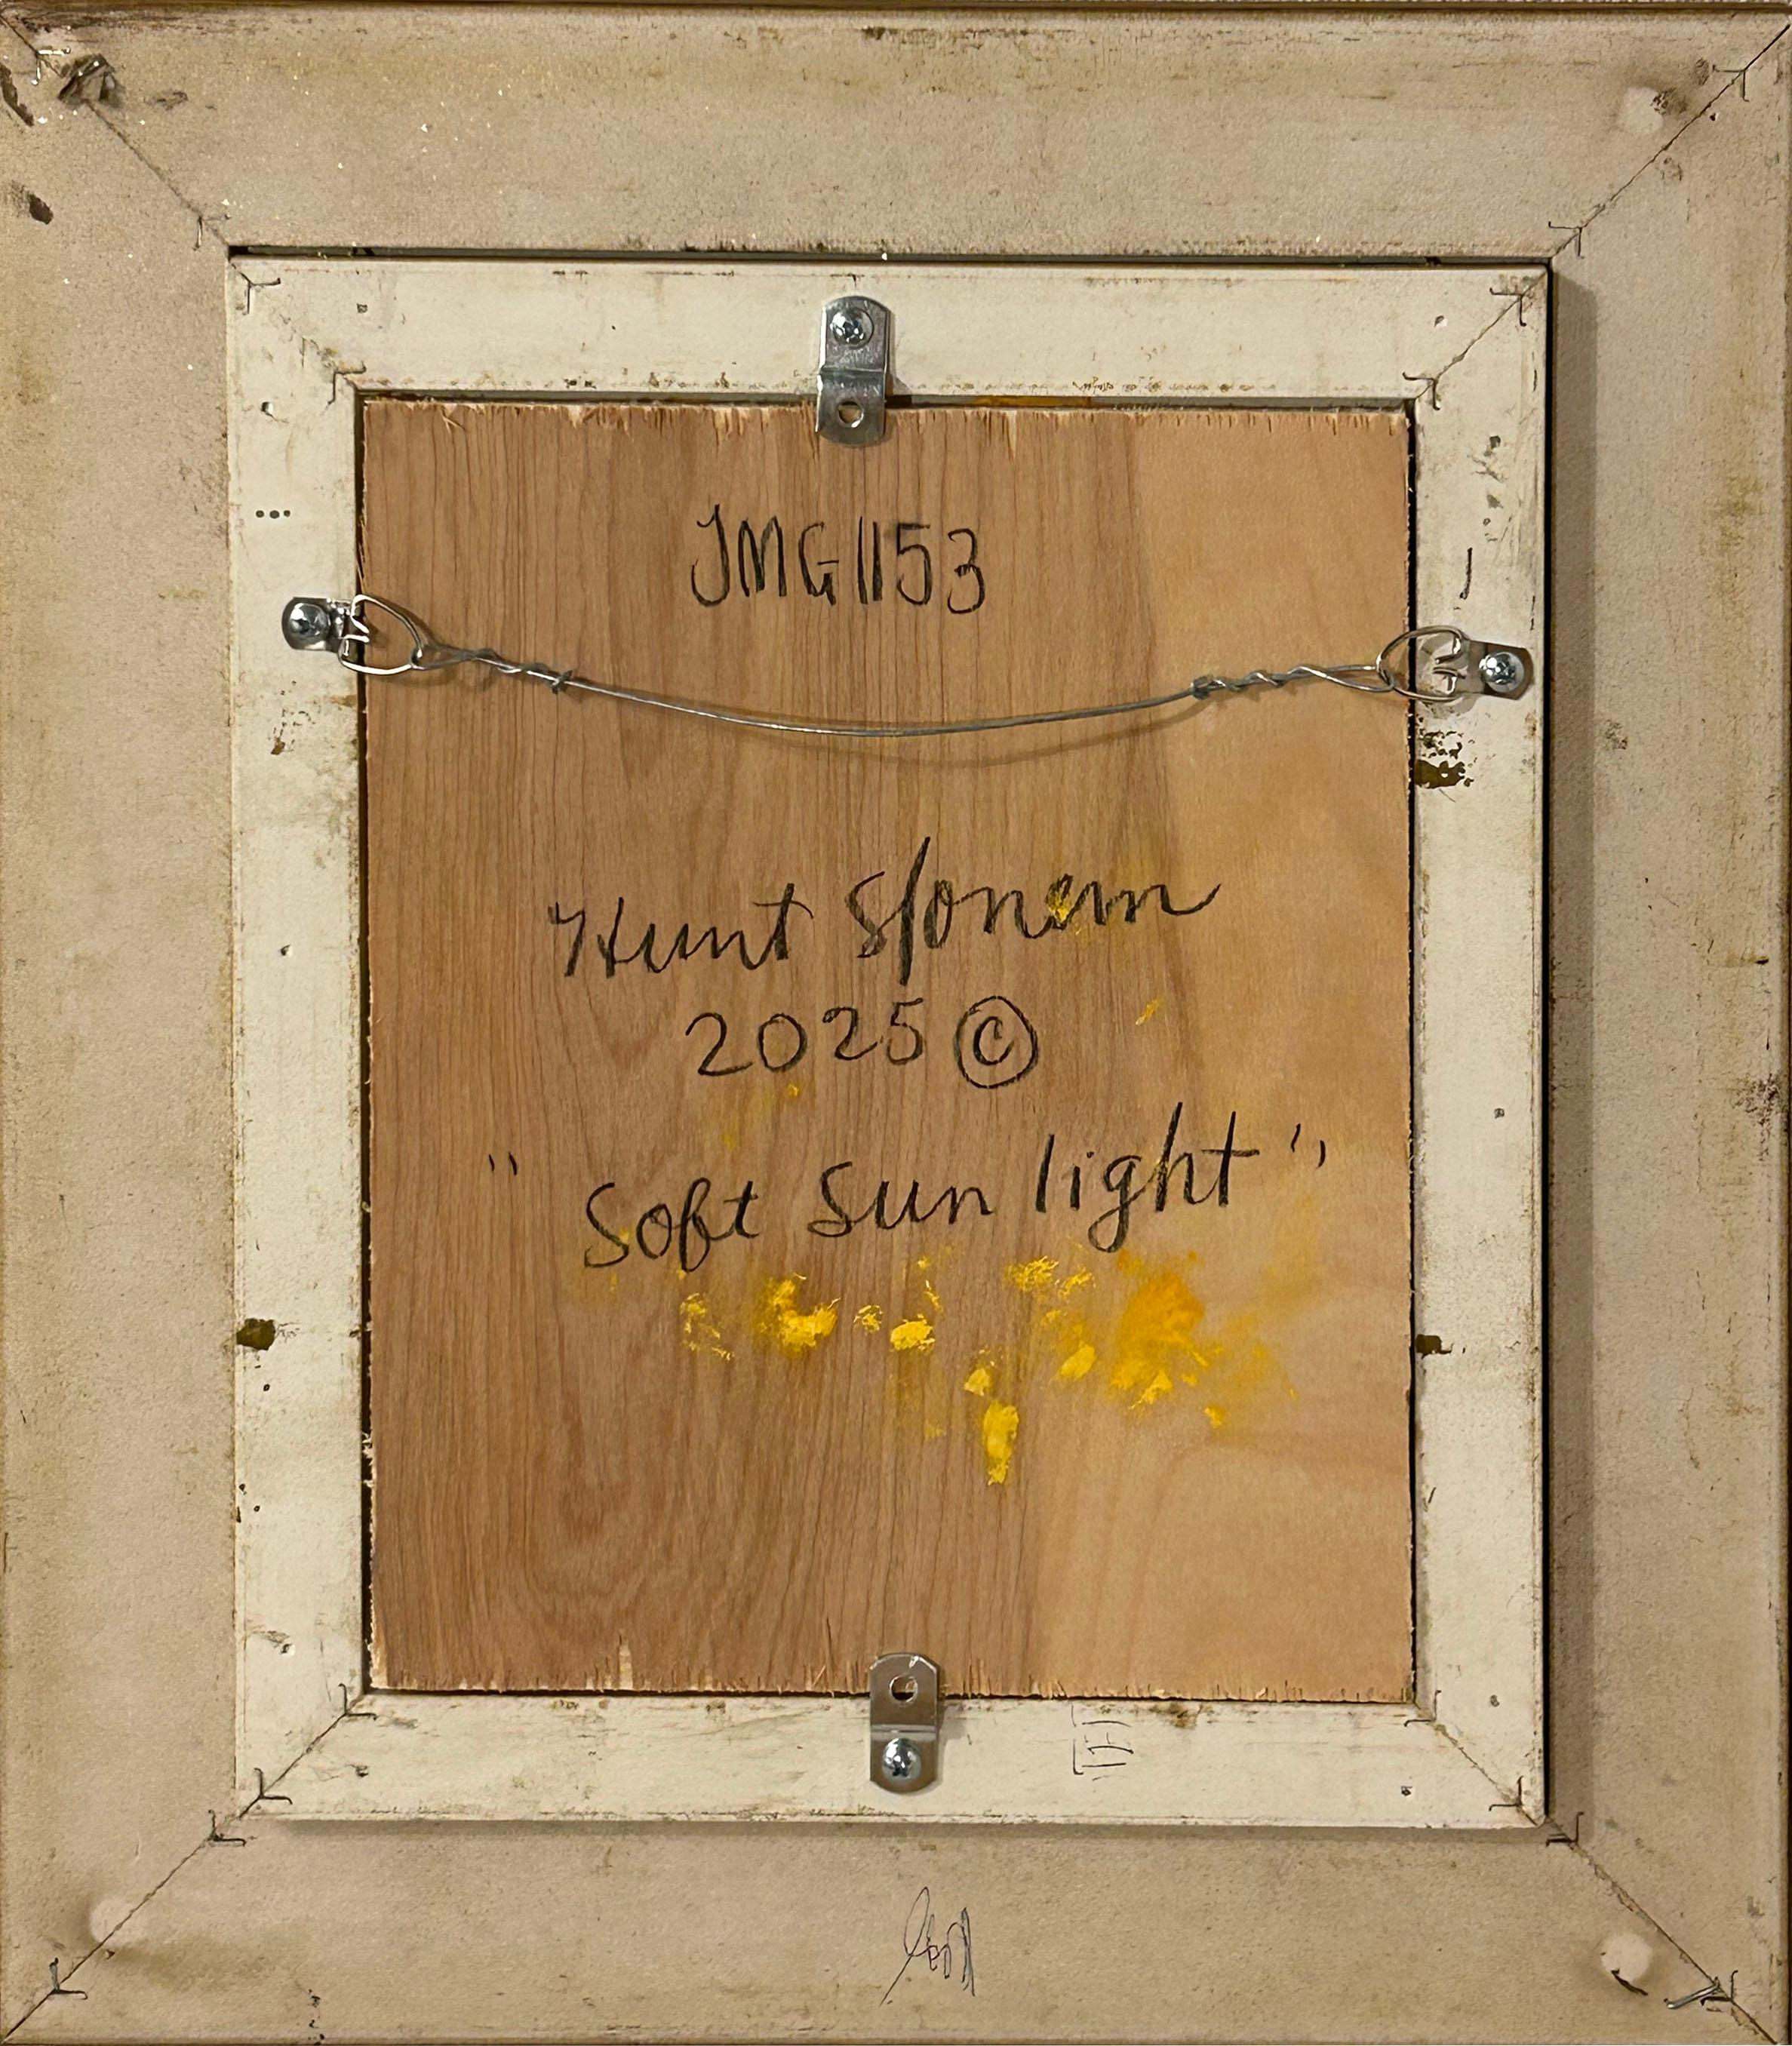 JMG1153
Hunt Slonem
2025 ©
"Soft Sun light"